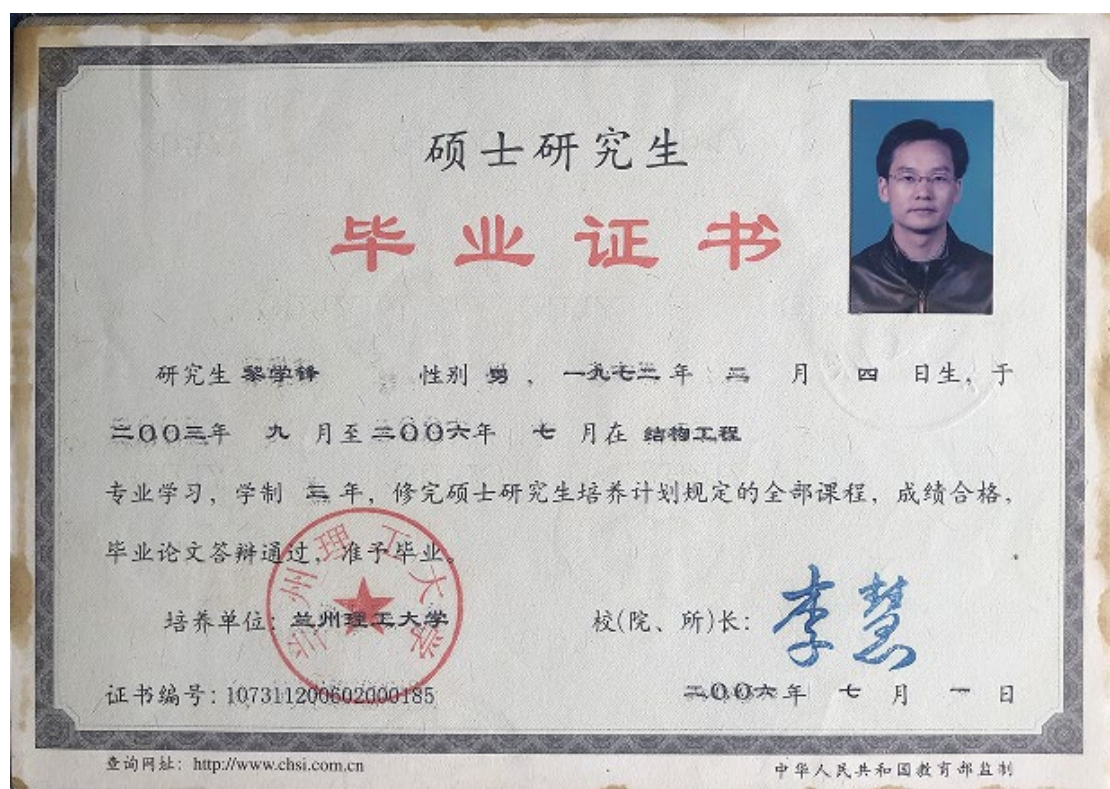 硕士研究生
毕业证书
研究生 黎学锋 性别 男 ， 一九七二 年 二 月 四 日生，于
二〇〇三年 九 月至 二〇〇六年 七 月在 结构工程
专业学习，学制 三 年，修完硕士研究生培养计划规定的全部课程，成绩合格，
毕业论文答辩通过，准予毕业。
兰州理工大学
培养单位：兰州理工大学 校(院、所)长： 李慧
证书编号：107311200602000185 二〇〇六年 七 月 一 日
查询网址：http://www.chsi.com.cn 中华人民共和国教育部监制